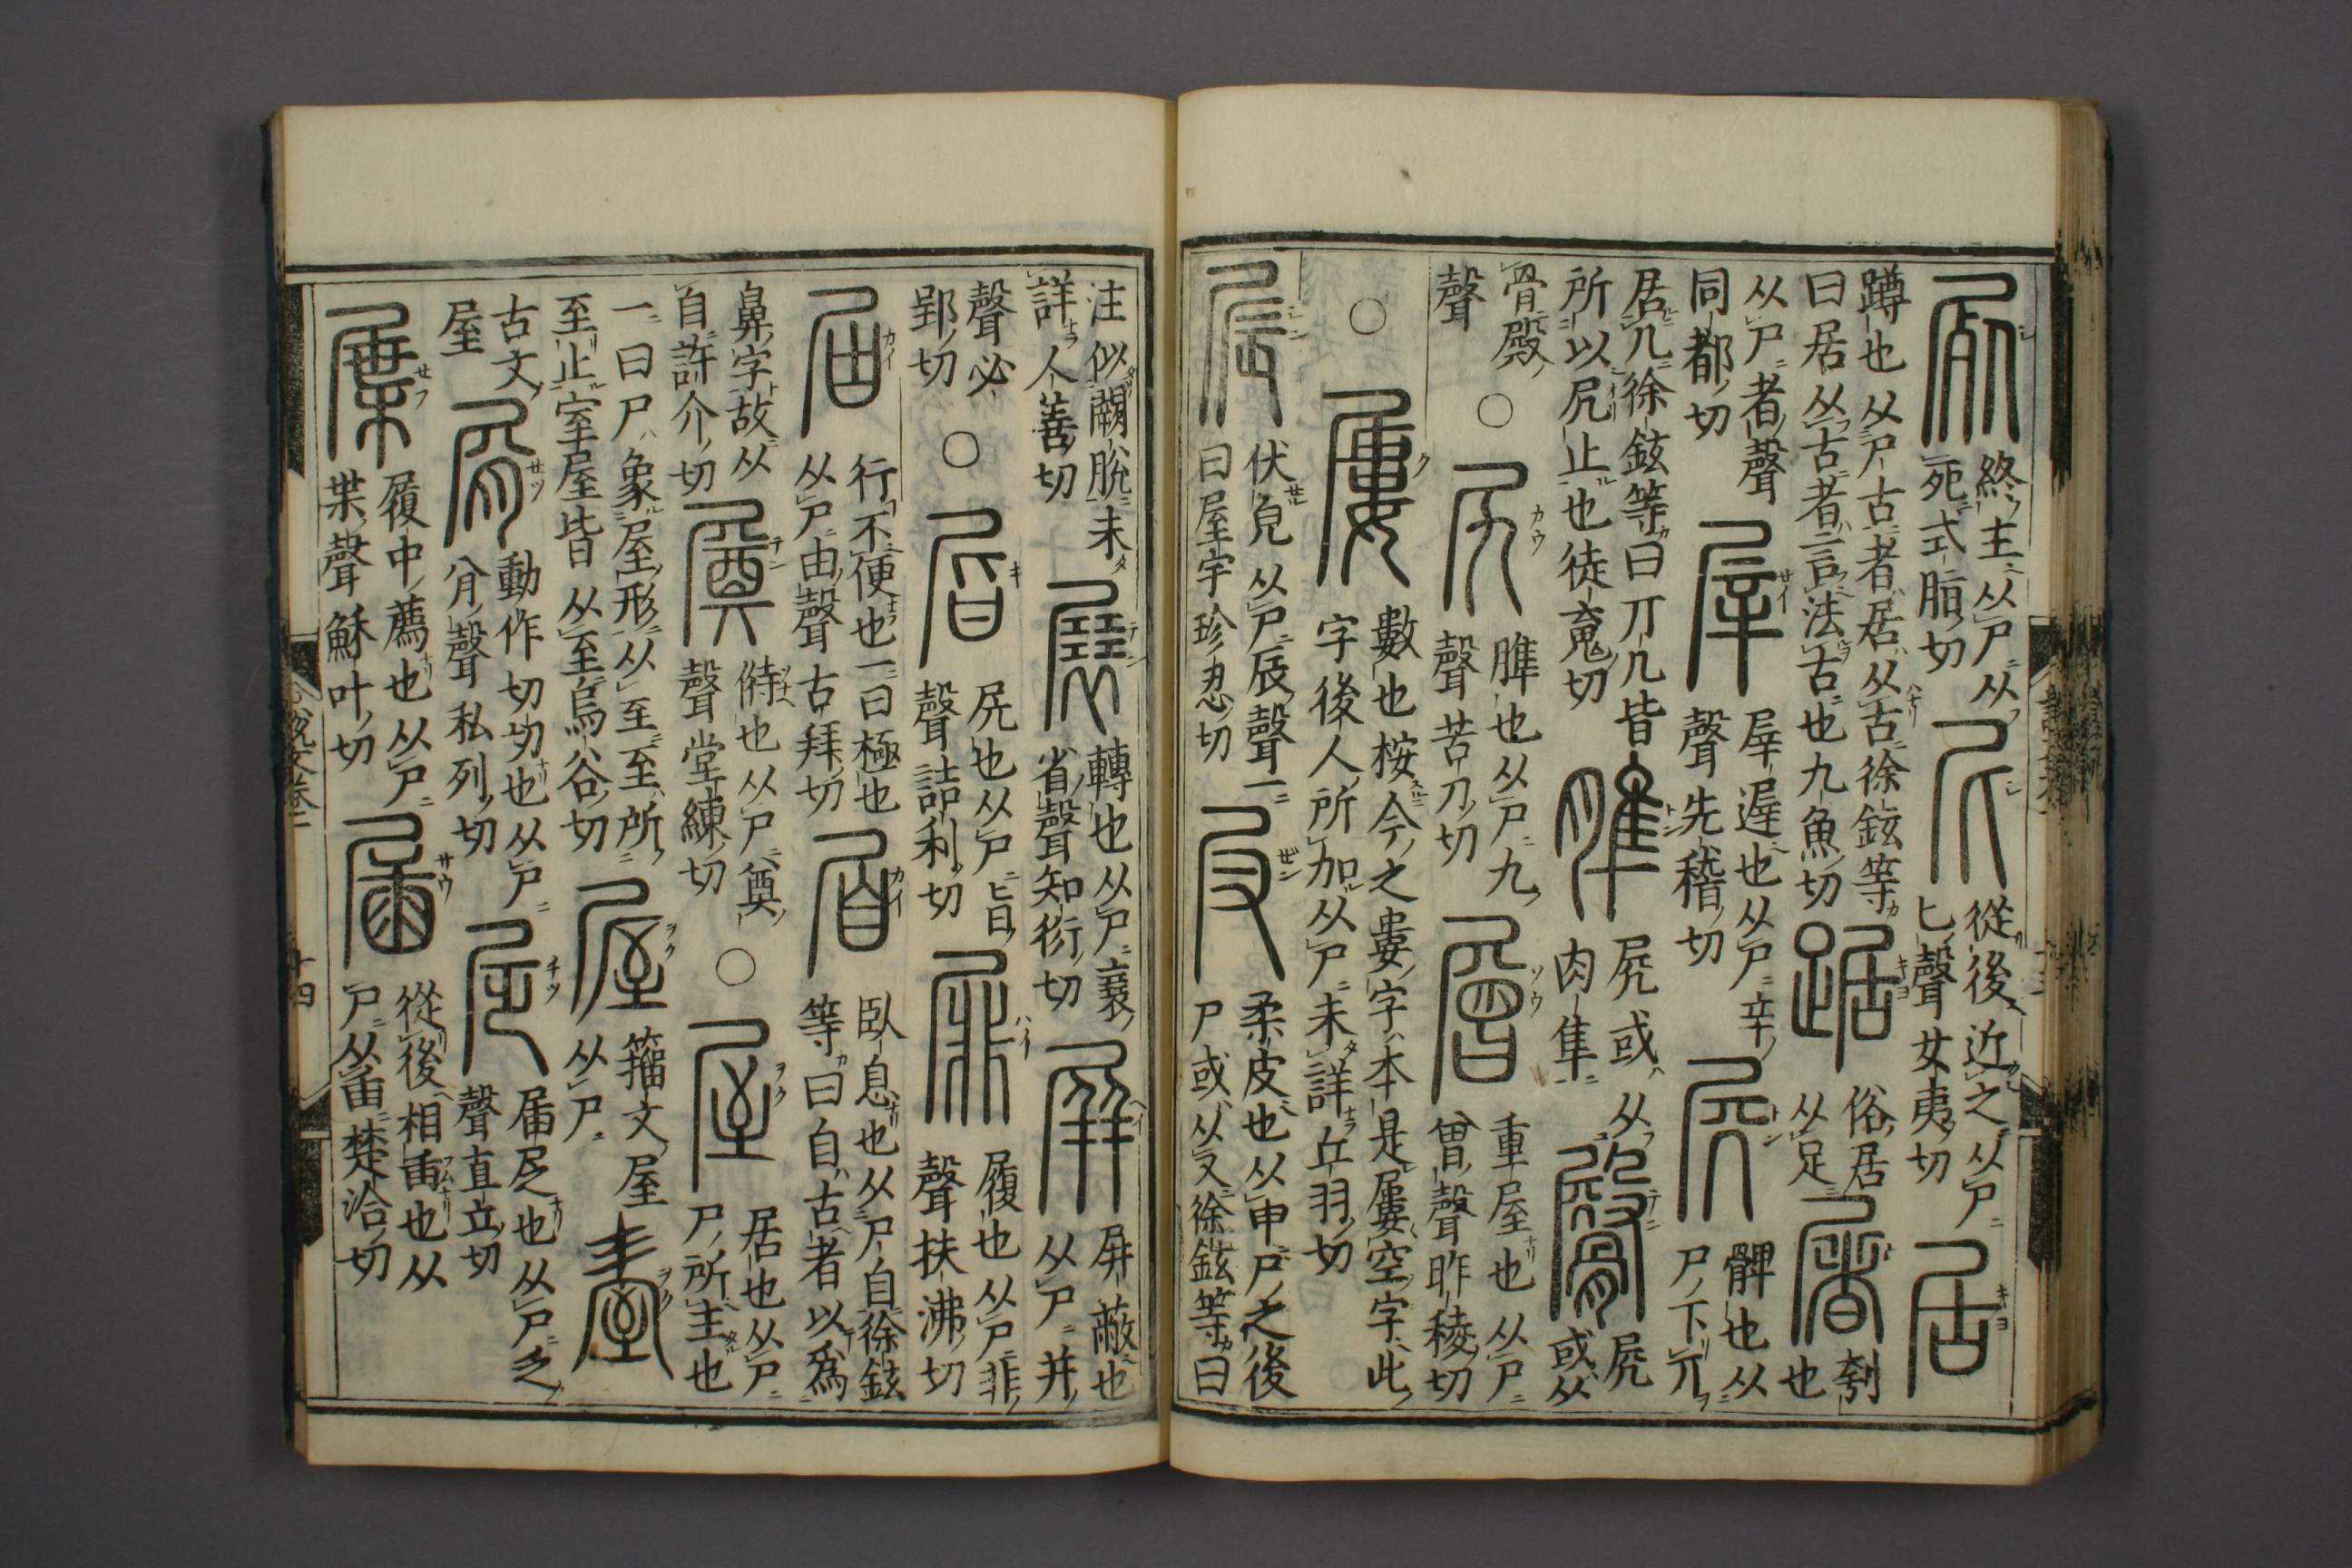 屍
終主从尸从
死式脂切
尼
從後近之从尸
匕聲女夷切
居
蹲也从尸古者居从古徐鉉等
曰居从古者言法古也九魚切
踞
俗居
从足
屠
刳
也
从尸者聲
同都切
屖
屖遟也从尸辛
聲先稽切
𡱒
髀也从
尸下丌
居几徐鉉等曰丌几皆
所以凥止也徒䰟切
脽
𡱒或从
肉隼
臀
𡱒或从
骨殿
聲
○
尻
脽也从尸九
聲苦刀切
層
重屋也从尸
曾聲昨稜切
○
屢
數也桉今之婁字本是屢空字此
字後人所加从尸未詳丘羽切
㞡
伏皃从尸辰聲一
曰屋宇珍忍切
㞋
柔皮也从申尸之後
尸或从又徐鉉等曰
注似闕脫未
詳人善切
展
轉也从尸㠭
省聲知衍切
屏
屏蔽也
从尸并
聲必
郢切
○
𡱼
尻也从尸旨
聲詰利切
屝
履也从尸非
聲扶沸切
屆
行不便也一曰極也
从尸由聲古拜切
𡱝
臥息也从尸自徐鉉
等曰自古者以爲
鼻字故从
自許介切
㞟
偫也从尸奠
聲堂練切
○
屋
居也从尸
尸所主也
一曰尸象屋形从至至所
至止室屋皆从至烏谷切
屋
籀文屋
从尸
古文
屋
屑
動作切切也从尸
㕯聲私列切
㞚
届㞚也从尸乏
聲直立切
屟
履中薦也从尸
枼聲穌叶切
届
從後相臿也从
尸从臿楚洽切
説文卷二
十四